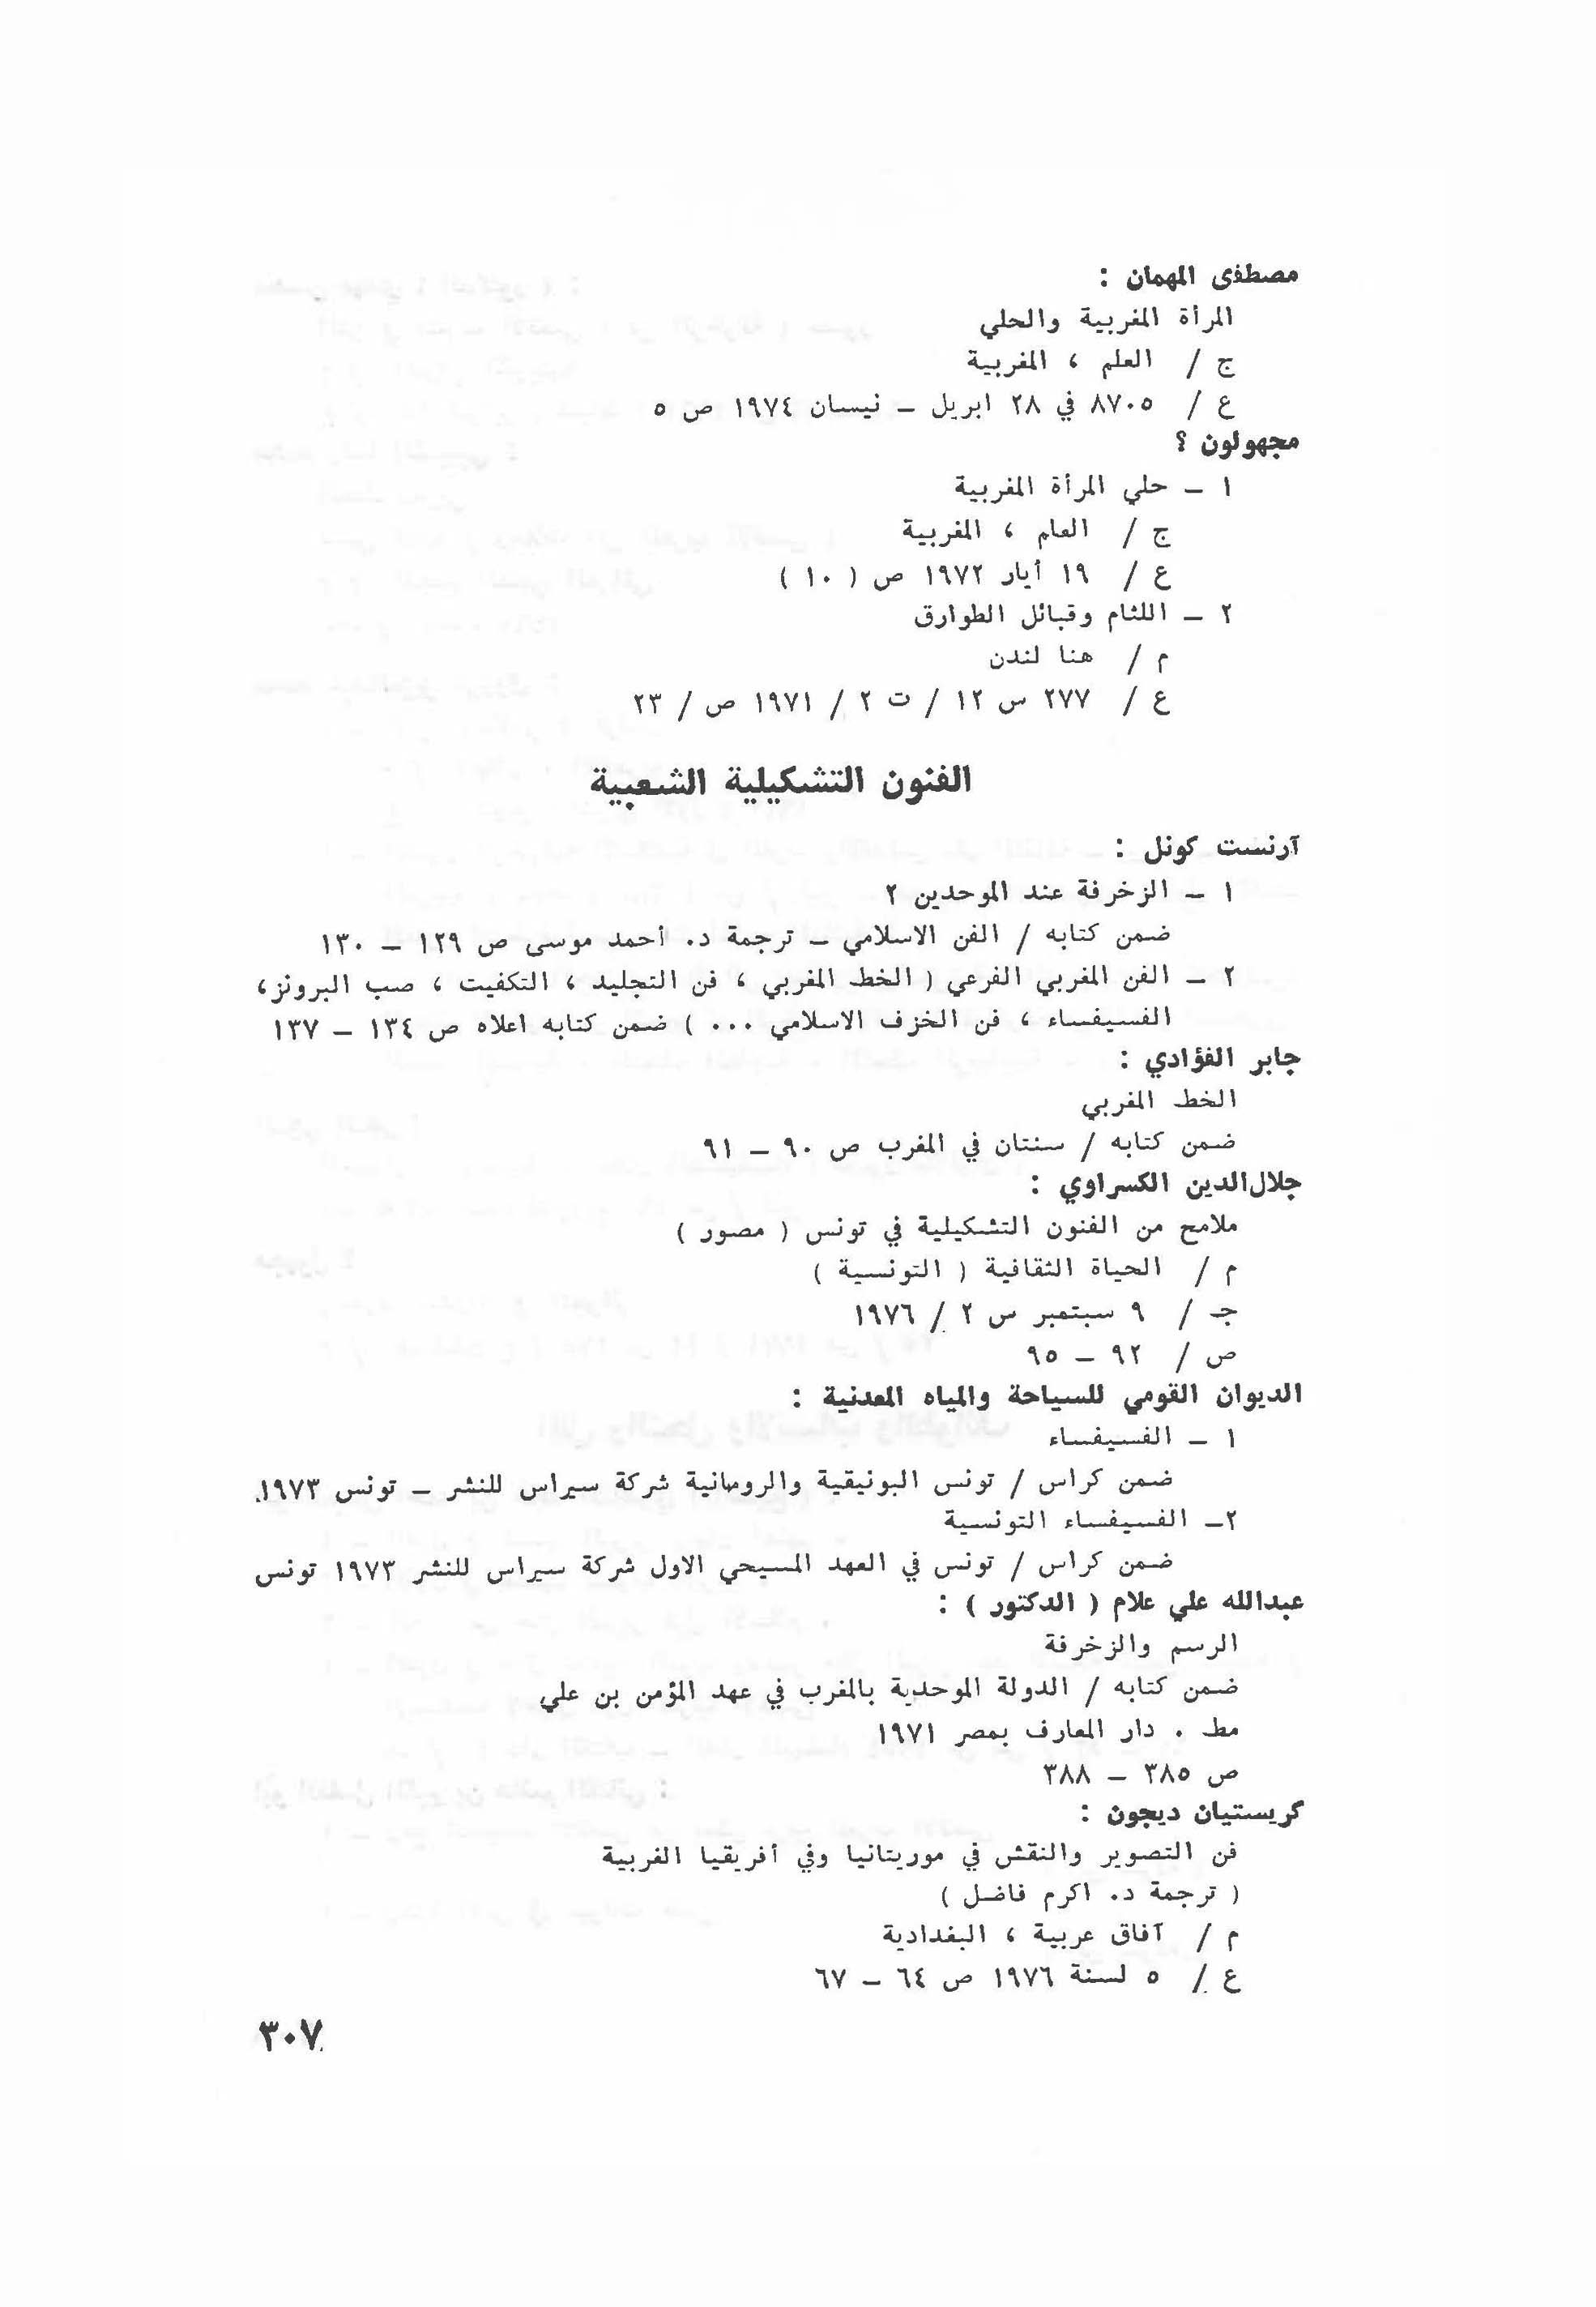 مصطفى المهمان :
المرأة المغربية والحلي
ج / العلم ، المغربية
ع / ٨٧٠٥ في ٢٨ ابريل – نيسان ١٩٧٤ ص ٥
مجهولون ؟
١ – حلي المرأة المغربية
ج / العام ، المغربية
ع / ١٩ أيار ١٩٧٢ ص ( ١٠ )
٢ – اللثام وقبائل الطوارق
م / هنا لندن
ع / ٢٧٧ س ١٢ / ت ٢ / ١٩٧١ ص / ٢٣
الفنون التشكيلية الشعبية
آرنست كونل :
١ – الزخرفة عند الموحدين ٢
ضمن كتابه / الفن الاسلامي – ترجمة د. أحمد موسى ص ١٢٩ – ١٣٠
٢ – الفن المغربي الفرعي ( الخط المغربي ، فن التجليد ، التكفيت ، صب البرونز،
الفسيفساء ، فن الخزف الاسلامي ... ) ضمن كتابه اعلاه ص ١٣٤ – ١٣٧
جابر الفؤادي :
الخط المغربي
ضمن كتابه / سنتان في المغرب ص ٩٠ – ٩١
جلال‌الدين الكسراوي :
ملامح من الفنون التشكيلية في تونس ( مصور )
م / الحياة الثقافية ( التونسية )
جـ / ٩ سبتمبر س ٢ / ١٩٧٦
ص / ٩٢ – ٩٥
الديوان القومي للسياحة والمياه المعدنية :
١ – الفسيفساء
ضمن كراس / تونس البونيقية والرومانية شركة سيراس للنشر – تونس ١٩٧٣.
٢– الفسيفساء التونسية
ضمن كراس / تونس في العهد المسيحي الاول شركة سيراس للنشر ١٩٧٣ تونس
عبدالله علي علام ( الدكتور ) :
الرسم والزخرفة
ضمن كتابه / الدولة الموحدية بالمغرب في عهد المؤمن بن علي
مط . دار المعارف بمصر ١٩٧١
ص ٣٨٥ – ٣٨٨
كريستيان ديجون :
فن التصوير والنقش في موريتانيا وفي أفريقيا الغربية
( ترجمة د. اكرم فاضل )
م / آفاق عربية ، البغدادية
ع / ٥ لسنة ١٩٧٦ ص ٦٤ – ٦٧
٣٠٧